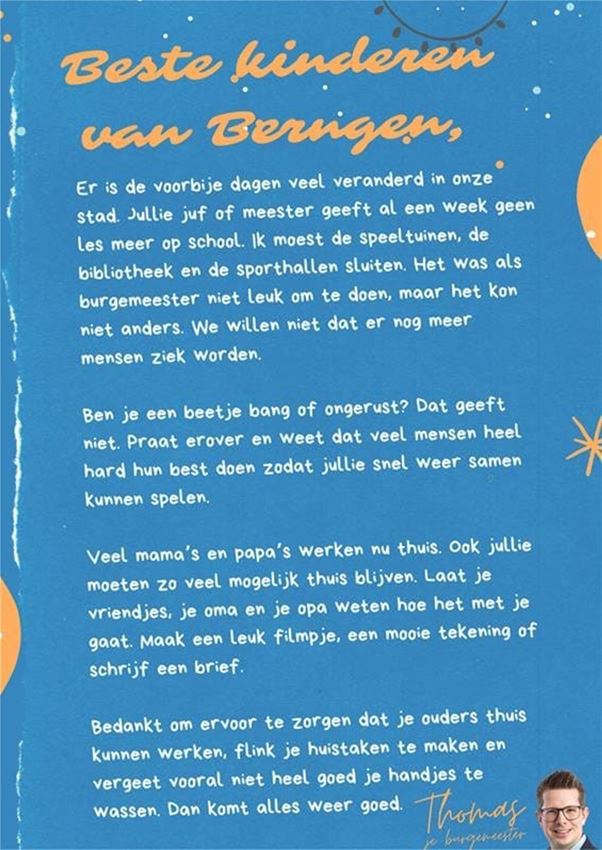 Beste kinderen
van Berngen,
Er is de voorbije dagen veel veranderd in onze
stad. Jullie juf of meester geeft al een week geen
les meer op school. Ik moest de speeltuinen, de
bibliotheek en de sporthallen sluiten. Het was als
burgemeester niet leuk om te doen, maar het kon
niet anders. We willen niet dat er nog meer
mensen ziek worden.
Ben je een beetje bang of ongerust? Dat geeft
niet. Praat erover en weet dat veel mensen heel
hard hun best doen zodat jullie snel weer samen
kunnen spelen.
Veel mama's en papa's werken nu thuis. Ook jullie
moeten zo veel mogelijk thuis blijven. Laat je
vriendjes, je oma en je opa weten hoe het met je
gaat. Maak een leuk filmpje, een mooie tekening of
schrijf een brief.
Bedankt om ervoor te zorgen dat je ouders thuis
kunnen werken, flink je huistaken te maken en
vergeet vooral niet heel goed je handjes te
wassen. Dan komt alles weer goed.
Thomas
je burgemeester